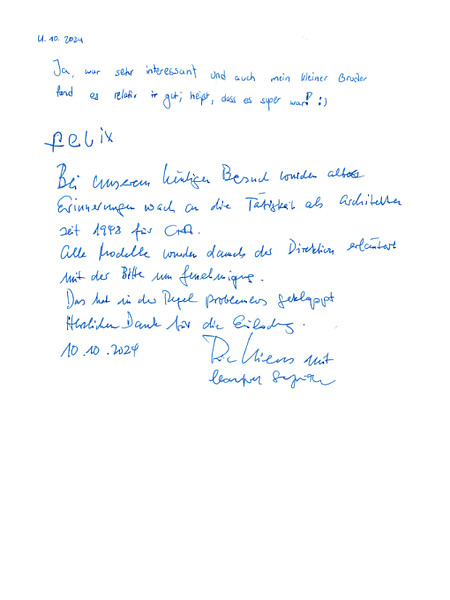 4.10.2024
Ja, war sehr interessant und auch mein kleiner Bruder
fand es relativ gut; heißt, dass es super war! :)
felix
Bei unserem heutigen Besuch wurden alte
Erinnerungen wach an die Tätigkeit als Architekten
seit 1998 für
Alle Modelle wurden damals der Direktion erläutert
mit der Bitte um Genehmigung.
Das hat in der Regel problemlos geklappt
Herzlichen Dank für die Einladung.
10.10.2024
mit